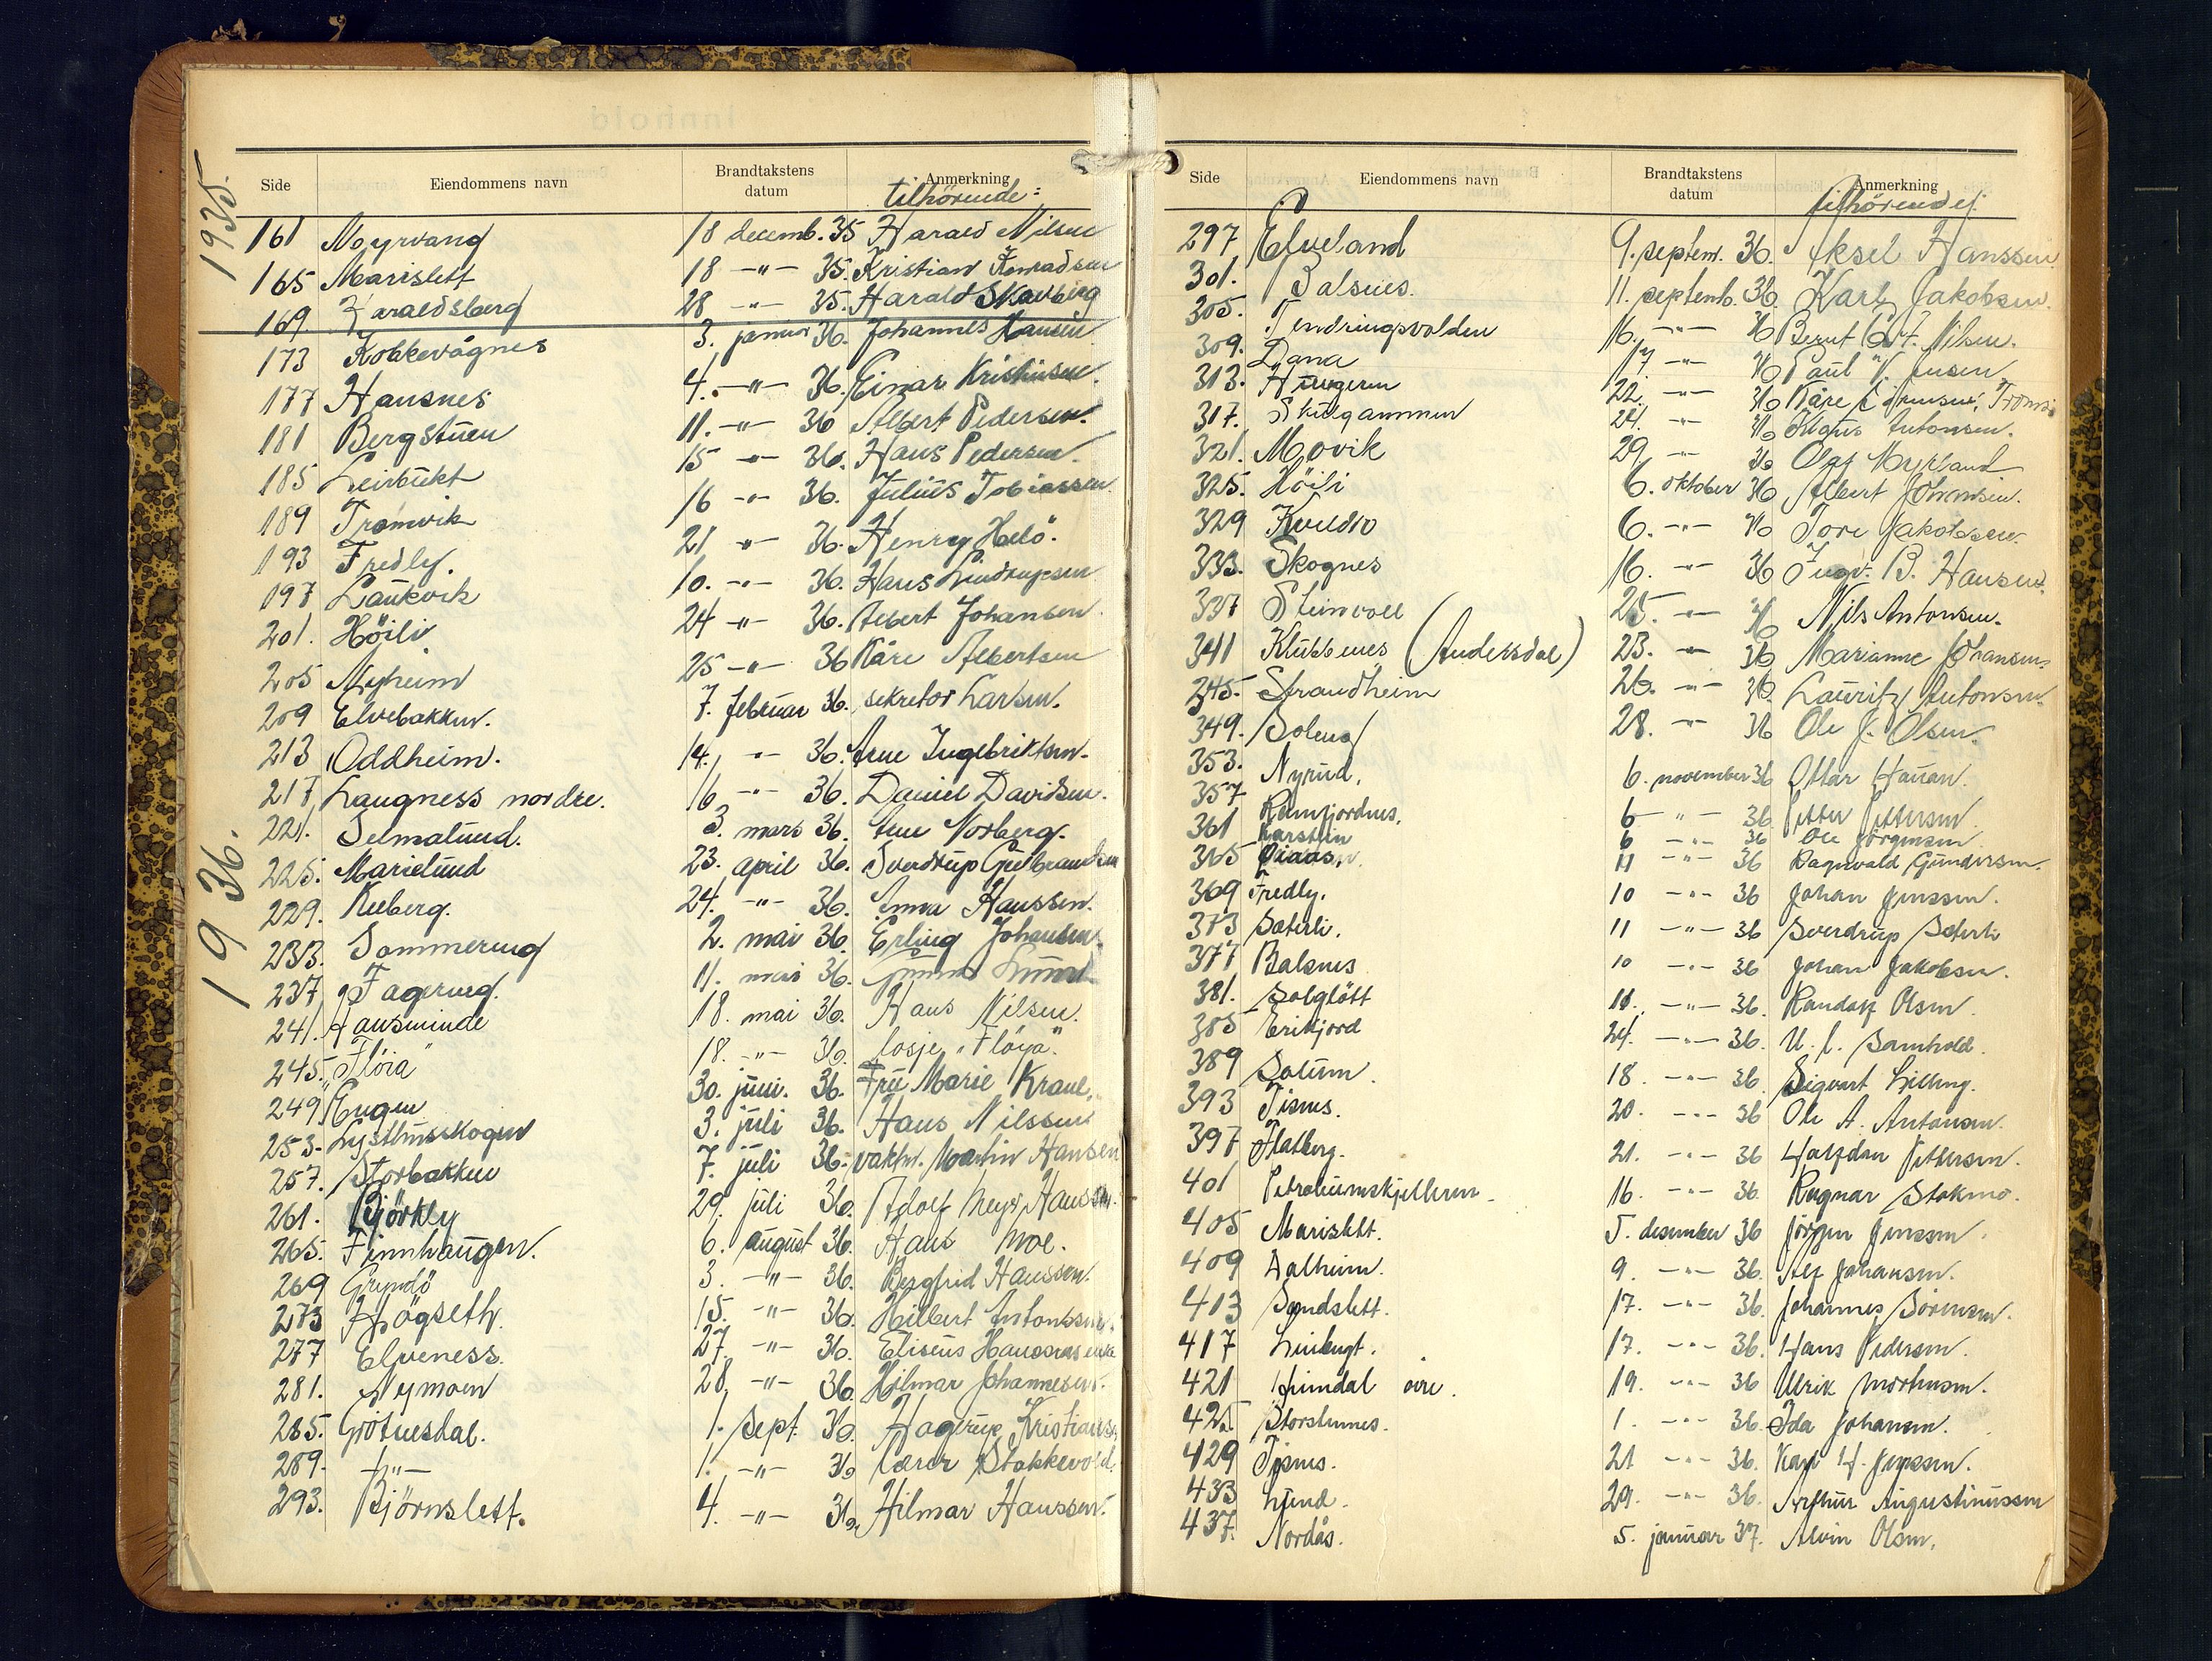 1935.
Side Eiendommens navn Brandtakstens datum Anmerkning
tilhörende:
161 Myrvang 18 decemb. 35 Harald Nilsen
165 Marislett 18 -"- 35. Kristian Konradsen
169 Haraldsberg 28 -"- 35. Harald Skavberg
1936.
173 Kobbevågnes 3. januar 36. Johannes Hansen
177 Hansnes 4. -"- 36. Einar Kristiansen.
181 Bergstuen 11. -"- 36 Albert Pedersen.
185 Leirbukt 15 -"- 36. Hans Pedersen.
189 Tromvik 16 -"- 36. Julius Tobiassen
193 Fredly. 21 -"- 36. Henry Helö.
197 Laukvik 10. -"- 36. Hans Lindrupsen
201. Höili. 24 -"- 36. Albert Johansen
205 Nyheim 25 -"- 36 Kåre Albertsen
209 Elvebakken. 7. februar 36. sekretær Larsen.
213 Oddheim. 14. -"- 36. Arne Ingebriktsen.
217 Langness nordre. 16 -"- 36. Daniel Davidsen.
221. Selmalund. 3. mars 36. Arne Norberg.
225. Marielund 23. april 36. Sverdrup Gulbrandsen
229. Kleberg. 24. -"- 36. Anna Hanssen.
233. Sommereng 2. mai 36. Erling Johansen
237 Fagereng. 11. mai 36.
241. Hansminde 18. mai 36. Hans Nilsen.
245. "Flöia" 18. -"- 36. losje "Flöya".
249 Engen 30. juni. 36. Fru Marie Krane.
253. Lysthusskogen 3. juli 36. Hans Nilssen
257. Storbakken 7. juli 36. vaktm. Martin Hansen
261. Björkly 29. juli 36. Adolf Meyer Hanssen.
265. Finnhaugen. 6. august 36. Hans Moe.
269 Gryndö 3. -"- 36. Bergfrid Hanssen.
273 Högseth. 15. -"- 36. Hilbert Antonssen.
277 Elveness. 27. -"- 36. Eliseus Hanssens enke
281. Nymoen 28. -"- 36. Hilmar Johannesen.
285. Grötnesdal. 1. sept. 36. Hagerup Kristians.
289. -"- 1. -"- 36 lærer Stakkevold.
293. Björnslett. 4. -"- 36. Hilmar Hanssen.
Side Eiendommens navn Brandtakstens datum Anmerkning
tilhörende:
297 Elveland 9. septem. 36. Aksel Hanssen
301. Balsnes. 11. septemb. 36. Karl Jakobsen.
305. Tendringsvolden 16. -"- 36 Bernt A. Nilsen.
309. Dana 17 -"- 36 Paul V. Jensen
313. Haugen 22. -"- 36 Kåre Sörensen, Tromsö
317. Skulgammen 24. -"- 36 Klaus Antonsen.
321. Movik 29. -"- 36 Olaf Myrland
325. Höili 6. oktober 36 Albert Johansen.
329 Kvedlo 6. -"- 36 Tore Jakobsen.
333. Skognes 16. -"- 36 Ingv. B. Hansen.
337 Steinvoll 25. -"- 36 Nils Antonsen.
341 Klubbenes (Andersdal) 23. -"- 36 Marianne Johansen.
345. Strandheim 26. -"- 36. Lauritz Antonsen.
349. Soleng 28. -"- 36 Ole J. Olsen.
353. Nyrud. 6. november 36 Ottar Hauan.
357 Ramfjordnes. 6 -"- 36 Petter Pettersen.
361 Karstein 6 -"- 36 Ole Jörgensen
365 11 -"- 36 Ragnvald Gundersen.
369 Fredly. 10 -"- 36 Johan Jenssen.
373 Sæterli. 11 -"- 36 Sverdrup Sæterli
377 Balsnes 10 -"- 36 Johan Jakobsen.
381. Solglött 11. -"- 36. Randolf Olsen.
385 Eirikjord 24. -"- 36. U. l. Samhold.
389 Solum. 18. -"- 36. Sigvart Lilleng.
393 Tisnes. 20. -"- 36 Ole A. Antonsen.
397 Flatberg. 21. -"- 36 Halfdan Pettersen.
401 Petroleumskjelleren. 16. -"- 36 Ragnar Stokmo.
405 Marislett. 5. desember 36 Jörgen Jenssen.
409 Dalheim. 9. -"- 36. Alf Johansen.
413 Sandslett. 17. -"- 36. Johannes Sörensen.
417 Leirbugt. 17. -"- 36. Hans Pedersen.
421 Heimdal övre. 19. -"- 36 Ulrik Mortensen.
425 Storstennes. 1. -"- 36. Ida Johansen.
429 Tisnes. 21 -"- 36. Karl H. Jenssen.
433 Lund. 29. -"- 36. Arthur Augustinussen
437. Nordås. 5. januar 37. Alvin Olsen.